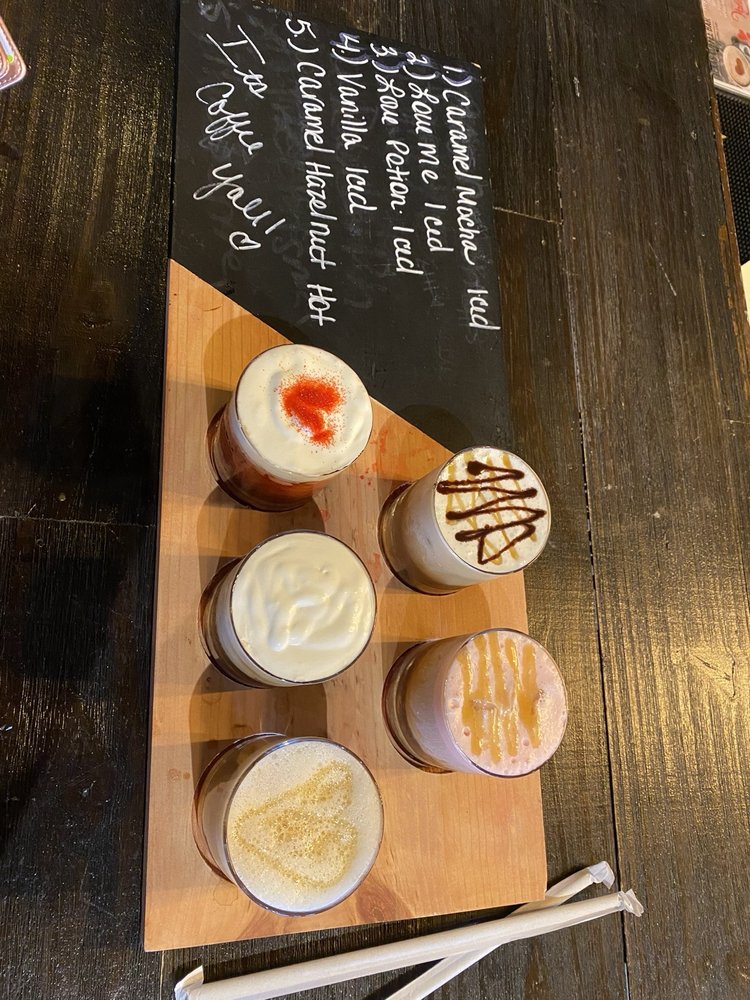 1.) Caramel Mocha Iced
2.) Love Me Iced
3.) Love Potion. Iced
4.) Vanilla Iced
5.) Caramel Hazelnut Hot
Its
Coffee
Yall!